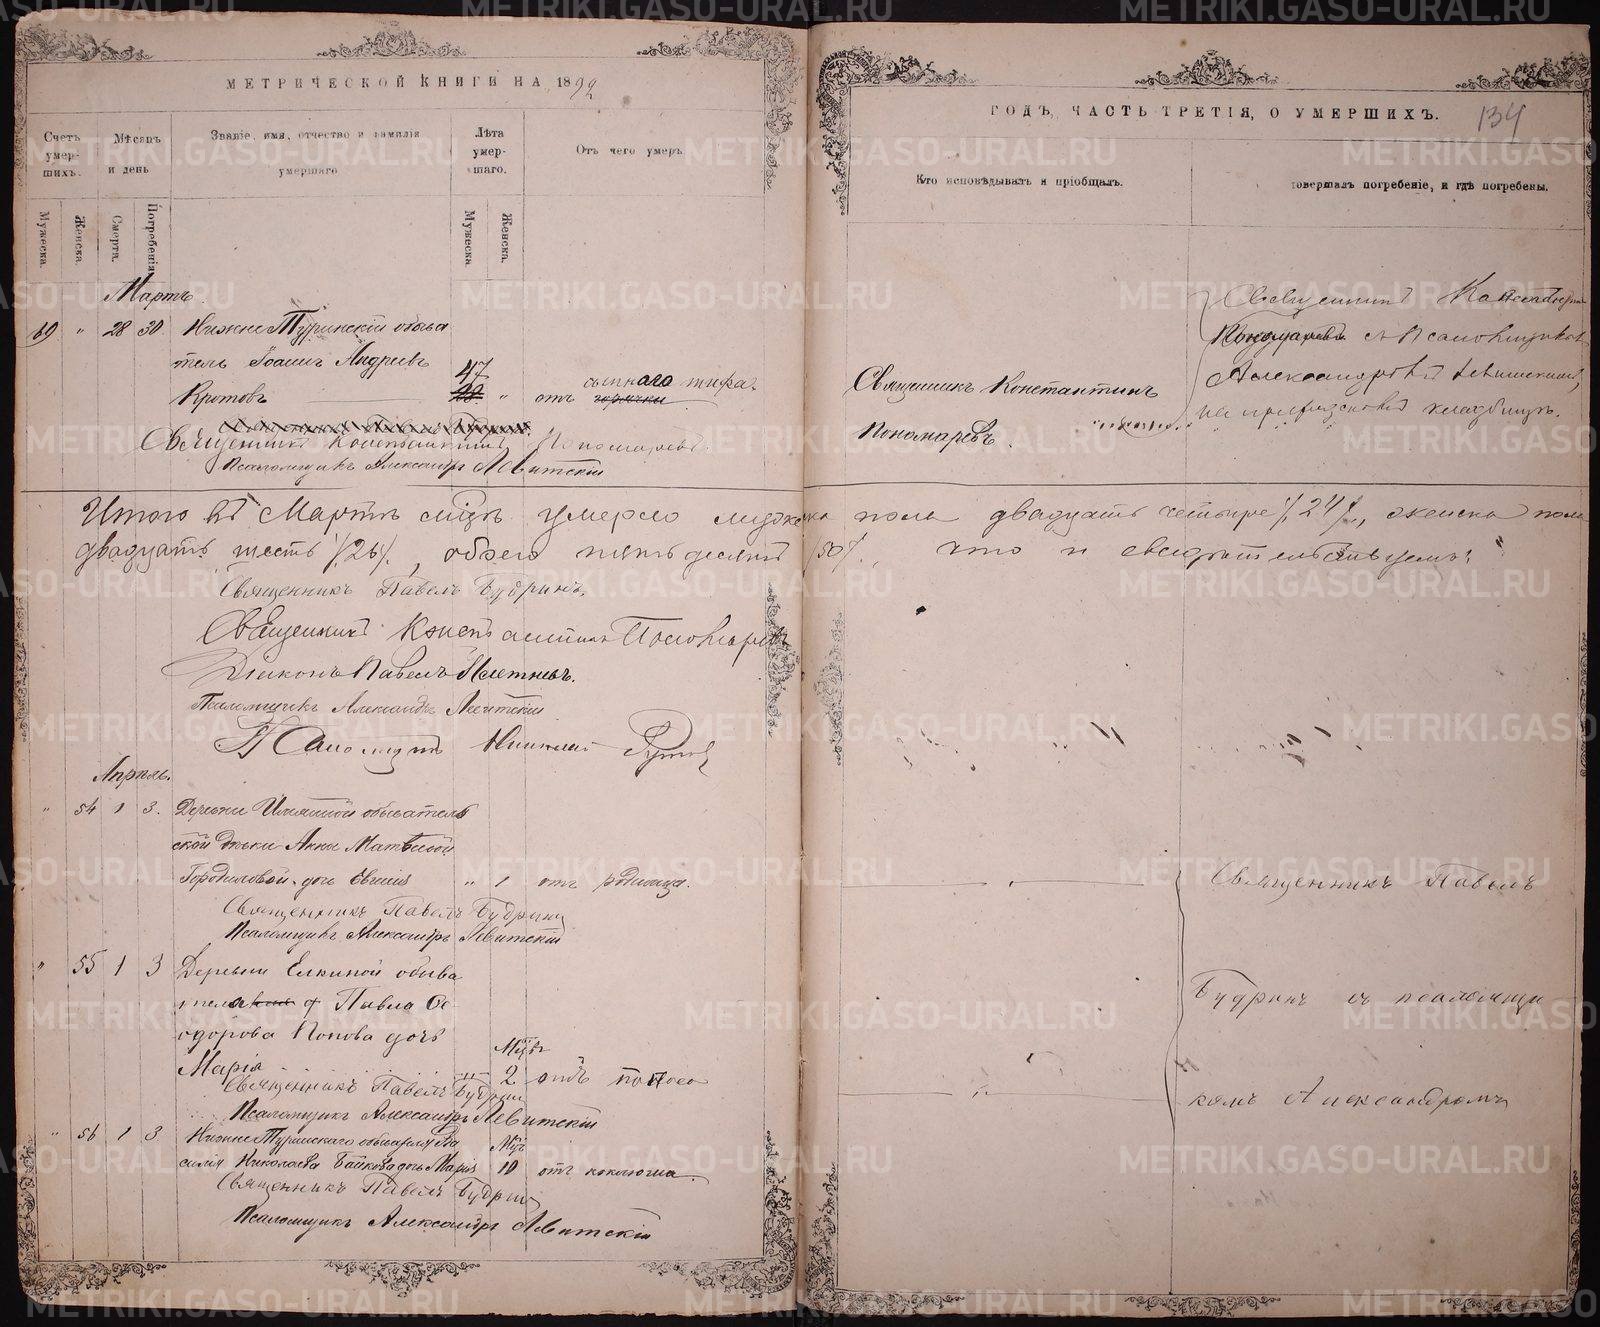 МЕТРИЧЕСКОЙ КНИГИ НА 1892
Счетъ умер- шихъ.
Мѣсяцъ и день
Званіе, имя, отчество и фамилія умершаго
Лѣта умер- шаго.
Отъ чего умеръ
Мужеска.
Женска.
Смерти.
Погребенія
Мужеска.
Женска.
Мартъ
" 28 30 Нижне Туринскій обыва
тель Іоаннъ Андреевъ
47
Кротовъ " отъ сыпнаго тифа.
горячки
Священникъ Константинъ Пономаревъ.
Псаломщикъ Александръ Левитскій
Итого въ Мартѣ мцѣ умерло мужеска
двадцать шесть /26/, обоего пятьдесятъ
Священникъ Павелъ Будринъ.
Священникъ Константинъ Пономаревъ
Діаконъ Павелъ
Псаломщикъ Александръ Левитскій
Псаломщикъ Николай
Апрѣль.
" 54 1 3. Деревни обыватель
ской дѣвки Анны Матвѣевой
дочь Евгенія " 1 отъ родимца.
Священникъ Павелъ Будринъ
Псаломщикъ Александръ Левитскій
" 55 1 3 Деревни Елкиной обыва
теля Павла Ѳе-
одорова Попова дочь
Мцъ
Марія 2 отъ поноса
Священникъ Павелъ Будринъ
Псаломщикъ Александръ Левитскій
" 56 1 3 Нижне Туринскаго обывателя Ва
Мцъ
силія Николаева дочь Марія 10 отъ коклюша.
Священникъ Павелъ Будринъ
Псаломщикъ Александръ Левитскій
ГОДЪ, ЧАСТЬ ТРЕТІЯ, О УМЕРШИХЪ. 134
Кто исповѣдывалъ и пріобщалъ.
совершалъ погребеніе, и гдѣ погребены.
Священникъ Константинъ
Пономаревъ съ Псаломщикомъ
Александромъ Левитскимъ,
на приходскомъ кладбищѣ.
Священникъ Константинъ
Пономаревъ.
пола двадцать четыре /24/, женска пола
/50/, что и свидѣтельствуемъ:
Священникъ Павелъ
Будринъ съ псаломщи
комъ Александромъ
METRIKI.GASO-URAL.RU